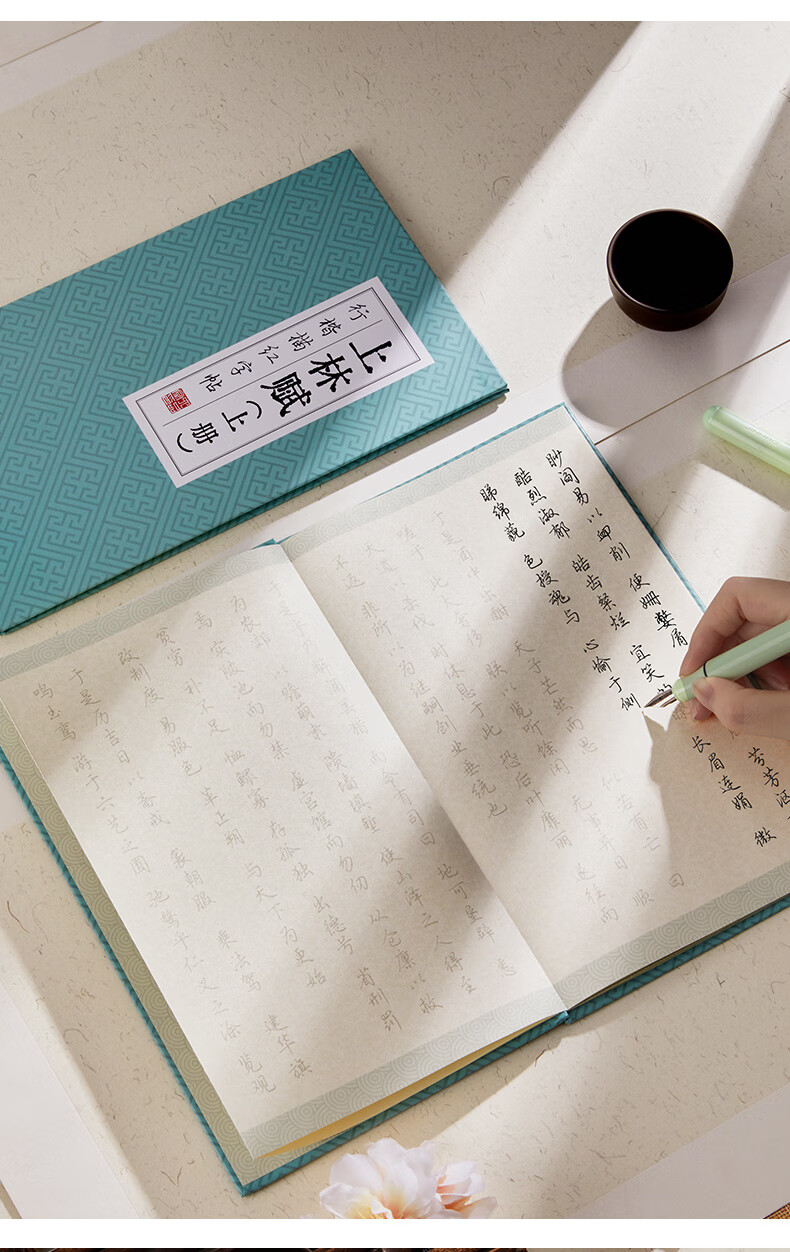 上林赋(上册)
行楷描红字帖
眇阎易以卹削 便姗嫳屑 芬芳沤
酷烈淑郁 皓齿粲烂 宜笑的 长眉连娟 微
睇绵藐 色授魂与 心愉于侧
于是酒中乐酣 天子芒然而思 似若有亡 曰
嗟乎 此大奢侈 朕以览听馀闲 无事弃日 顺
天道以杀伐 时休息于此 恐后叶靡丽 遂往而
不返 非所以为继嗣创业垂统也
而命有司曰 地可垦辟 悉
为农郊 以赡萌隶 隤墙填堑 使山泽之人得至
焉 实陂池而勿禁 虚宫馆而勿仞 仓廪以救
贫穷 补不足 恤鳏寡 存孤独 出德号 省刑罚
改制度 易服色 革正朔 与天下为更始
于是历吉日以斋戒 袭朝服 乘法驾 建华旗
鸣玉鸾 游于六艺之囿 驰骛乎仁义之涂 览观